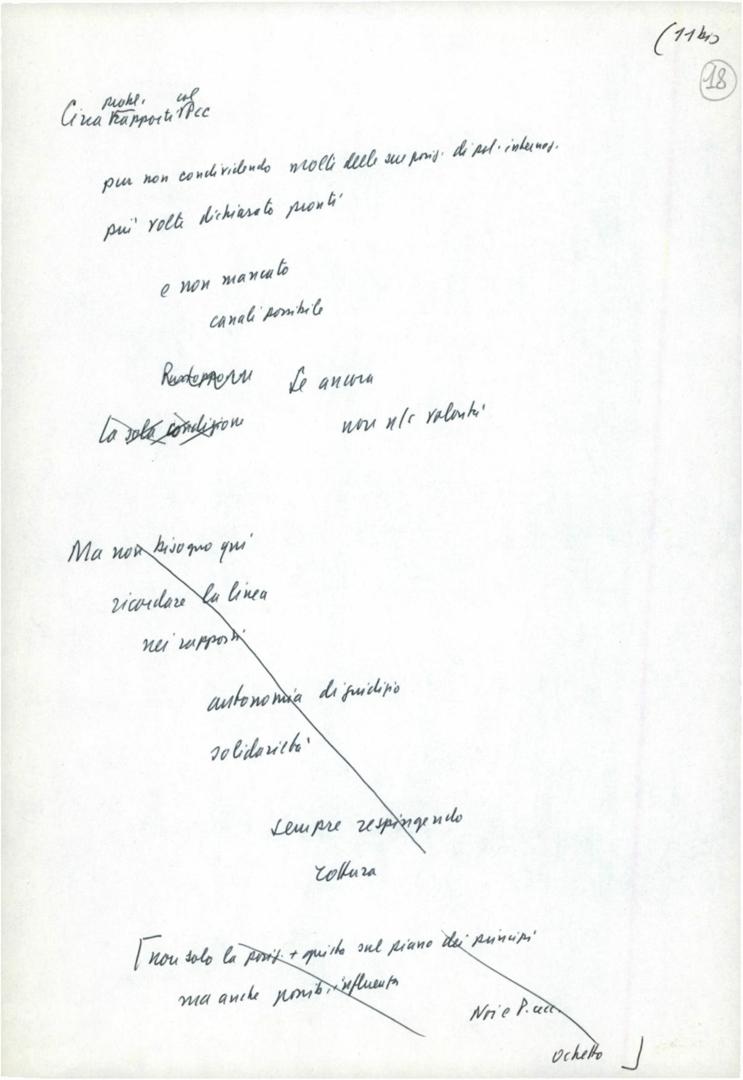 (11 bis
18
probl. col
Cina Rapporti PCC
pur non condividendo molte delle sue posiz. di pol. internaz.
più volte dichiarato pronti
e non mancato
canali possibile
Se ancora
La sola condizione
non n/s volontà
Ma non bisogno qui
ricordare la linea
nei rapporti
autonomia di giudizio
solidarietà
sempre respingendo
rottura
[non solo la posiz. + giusta sul piano dei principi
ma anche possib. influenza
Noi e P. occ.
Ochetto ]